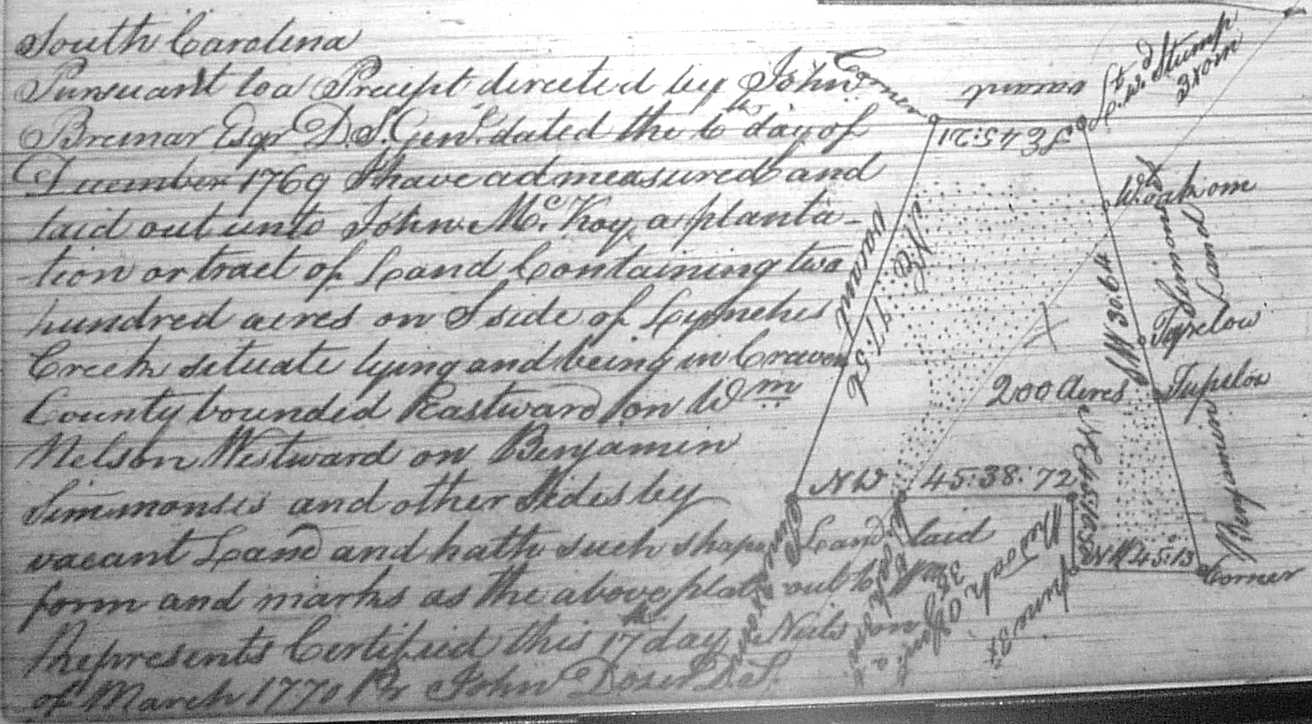 South Carolina
Pursuant to a Precept directed by John
Bremar Esqr D. S. Genl. dated the 6th day of
December 1769 I have admeasured and
laid out unto John Mc.Koy a planta-
-tion or tract of Land Containing two
hundred acres on S side of Lynches
Creek situate lying and being in Craven
County bounded Eastward on Wm
Nelson Westward on Benjamin
Simmonses and other Sides by
vacant Land and hath such shape
form and marks as the above plat
Represents Certified this 17th day
of March 1770 Pr John Dozer D. S.
Corner
vacant
Stump
3xom
SE 45:21
W. oak om
vacant
NE
Simmons
Land
NW
Tupelow
Tupelow
200 Acres
Benjamin
NW 45:38:72
NE 45:
NW 45:13
Corner
Land laid
out to Wm
Nelson